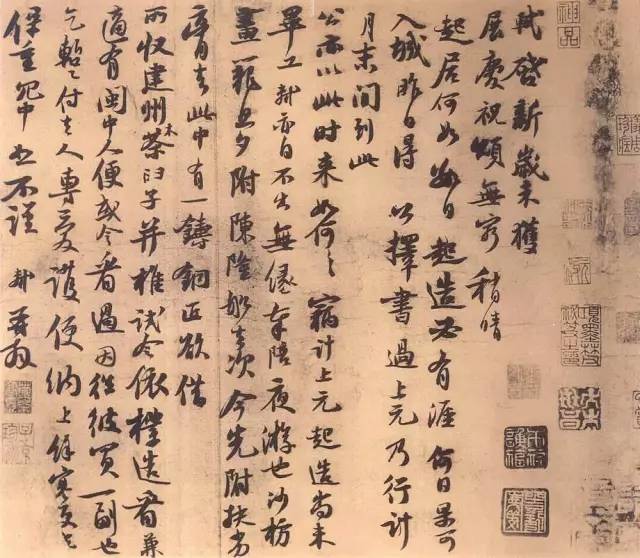 軾啓新歲未獲
展慶祝頌無窮稍晴
起居何如數日起造必有涯何日果可
入城昨日得公擇書過上元乃行計
月末間到此
公亦以此時來如何々竊計上元起造尚未
畢工軾亦自不出無緣奉陪夜游也沙枋
畫籠旦夕附陳隆船去次今先附扶劣
膏去此中有一鑄銅匠欲借
所收建州木茶臼子并椎試令依樣造看兼
適有閩中人便或令看過因往彼買一副也
乞暫付去人專愛護便納上餘寒更乞
保重冗中恕不謹 軾再拜
神品